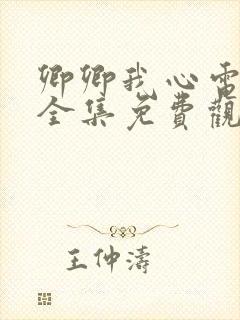 卿卿我心電
全集免費觀
王仲濤